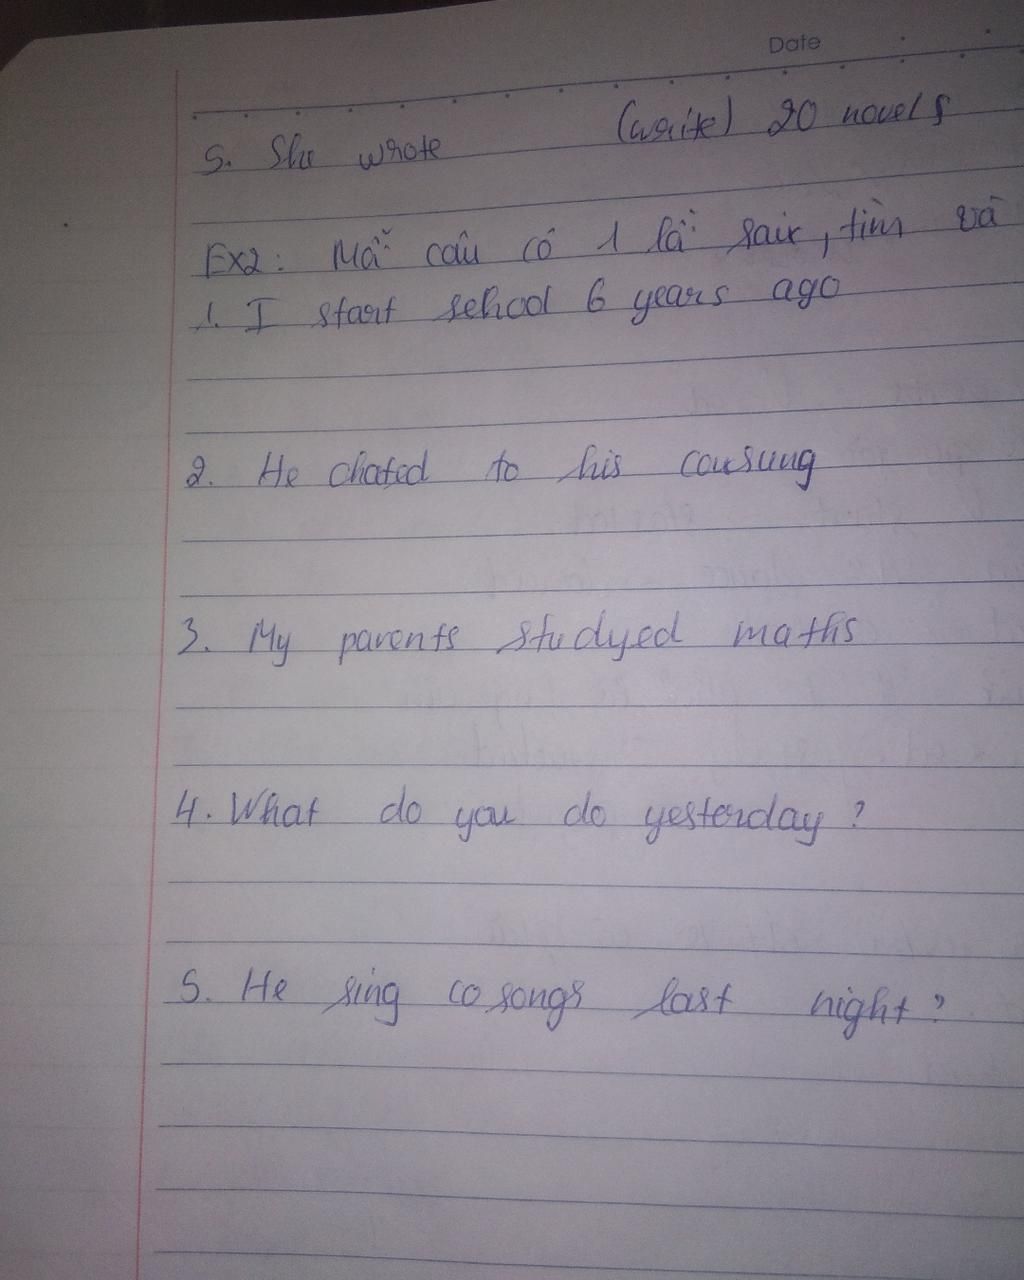 Date
5. She wrote (write) 20 novels
Ex2: Mỗi câu có 1 lỗi sai, tìm và
1. I start school 6 years ago
2. He chated to his cousung
3. My parents studyed maths
4. What do you do yesterday?
5. He sing 10 songs last night?